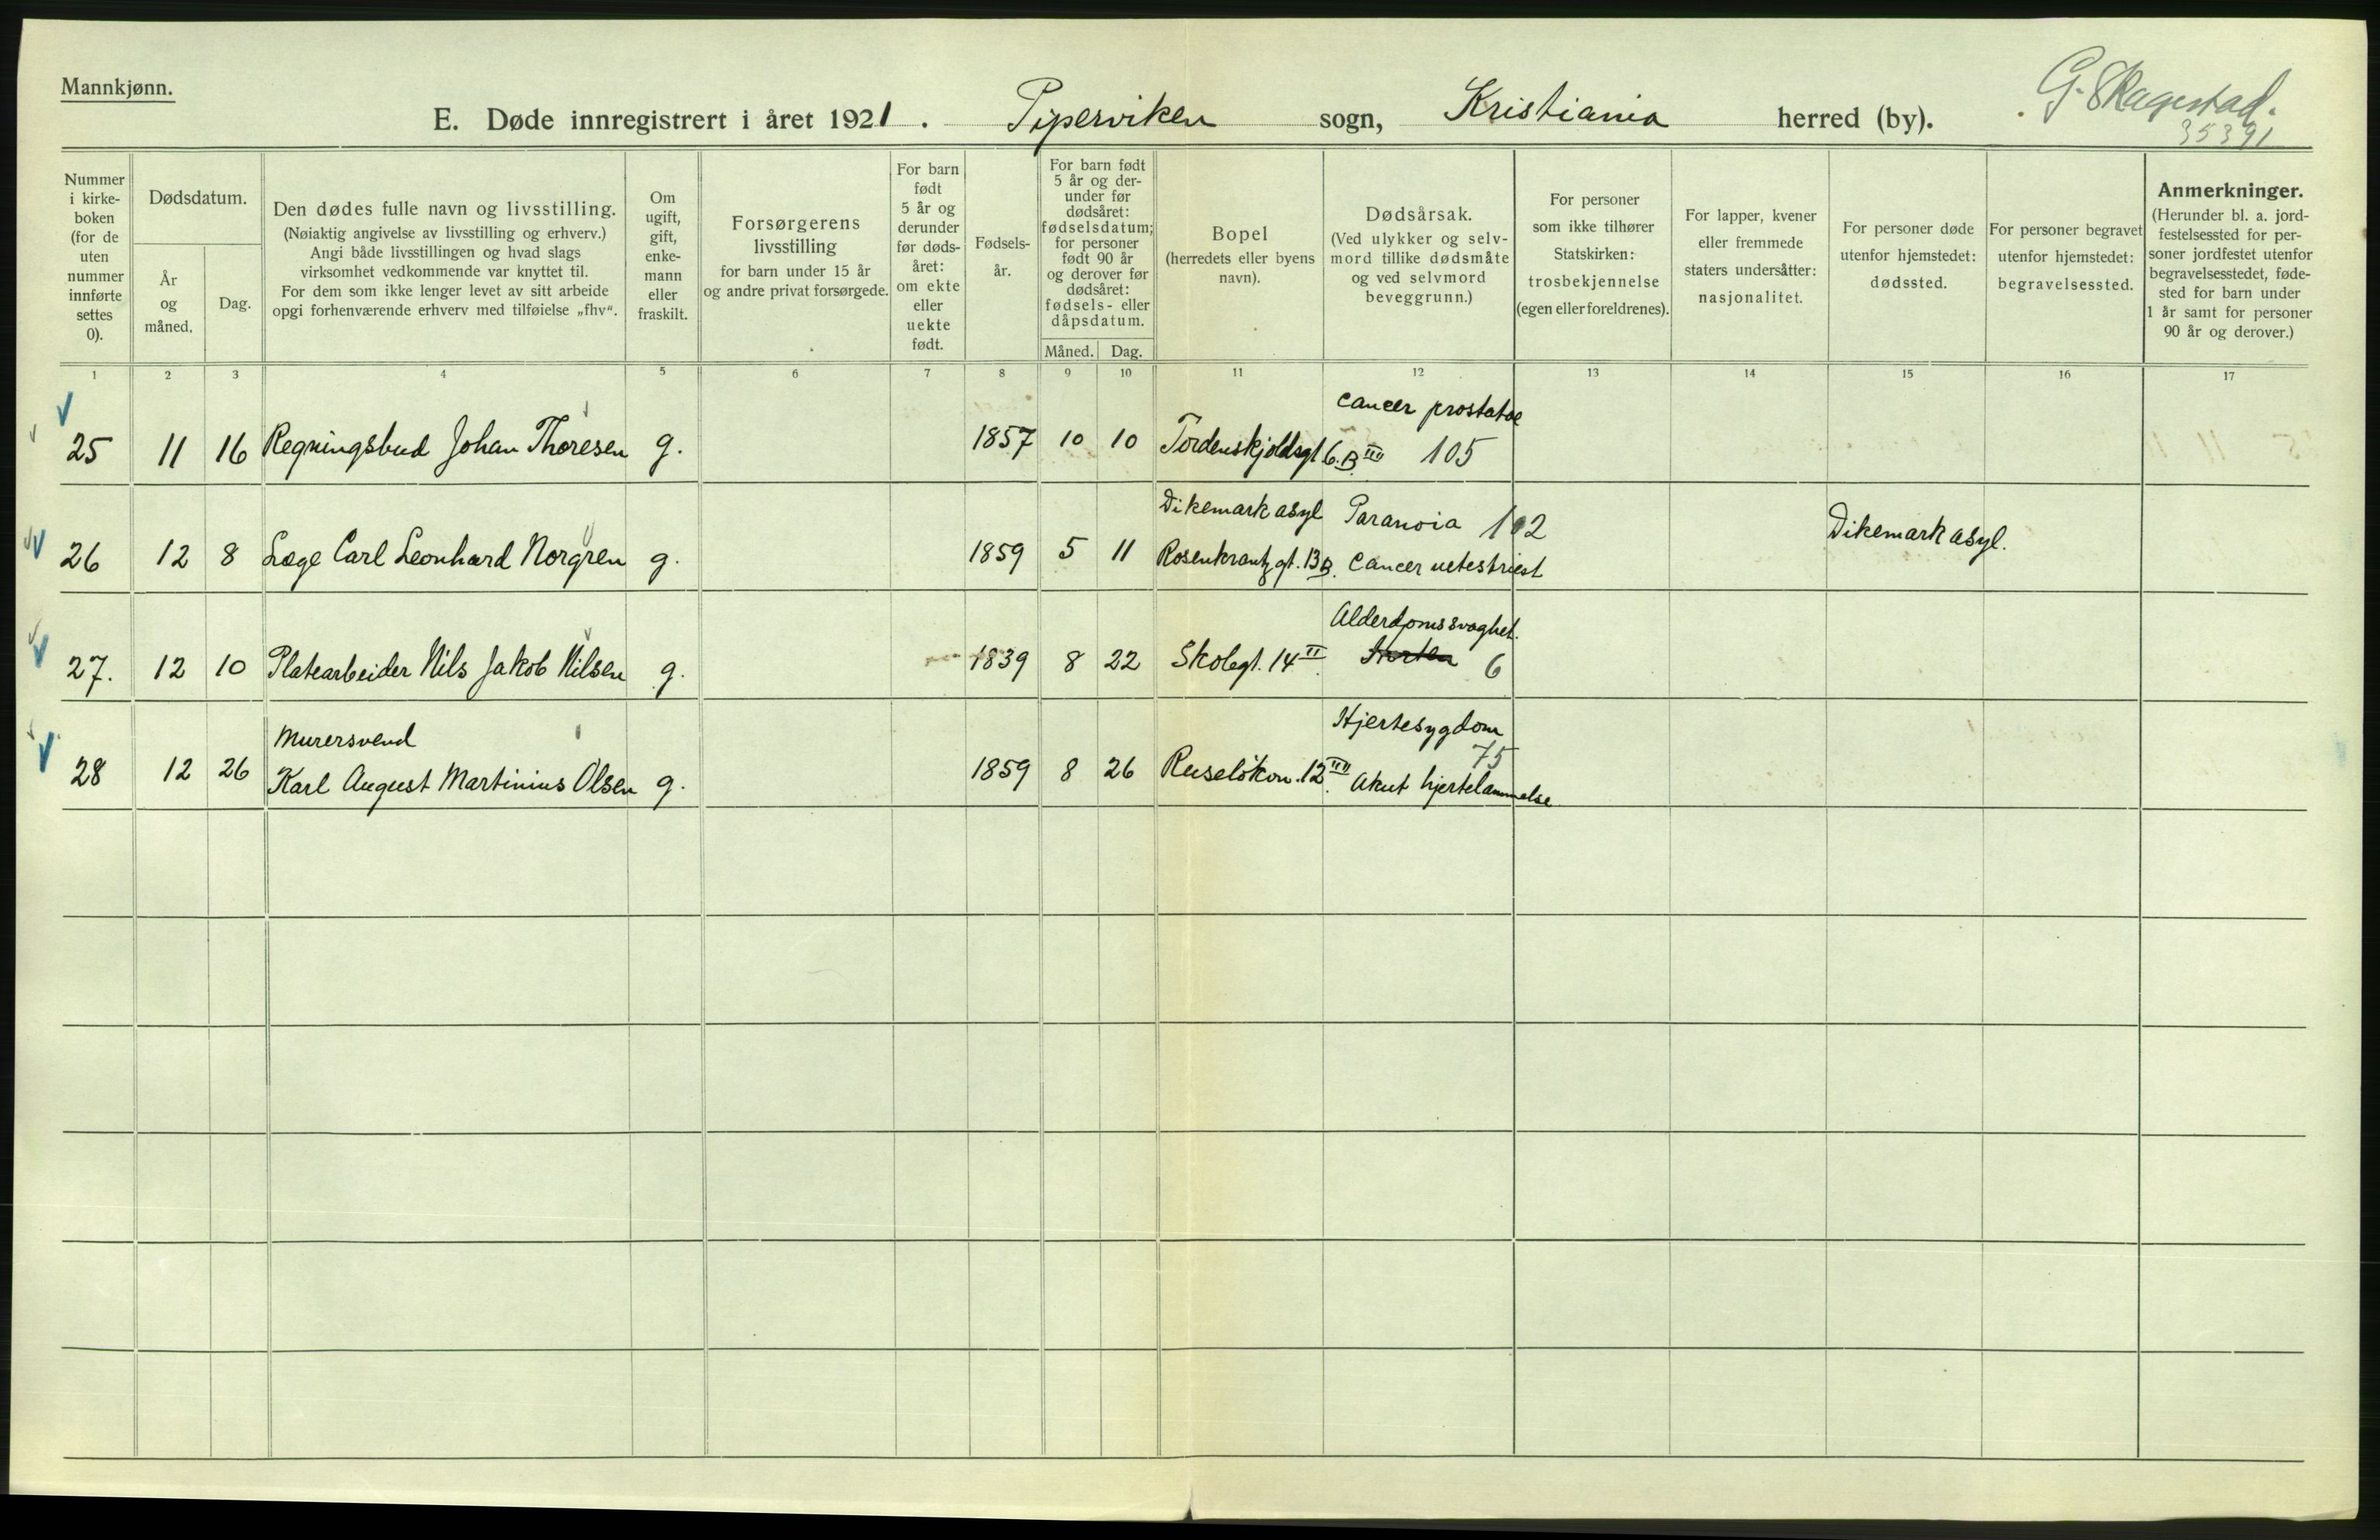 Mannkjønn.
E. Døde innregistrert i året 1921. Piperviken sogn, Kristiania herred (by).
G. Skagestad.
35391
Nummer
i kirke-
boken
(for de
uten
nummer
innførte
settes
0).
Dødsdatum.
År
og
måned.
Dag.
Den dødes fulle navn og livsstilling.
(Nøiaktig angivelse av livsstilling og erhverv.)
Angi både livsstillingen og hvad slags
virksomhet vedkommende var knyttet til.
For dem som ikke lenger levet av sitt arbeide
opgi forhenværende erhverv med tilføielse „fhv“.
Om
ugift,
gift,
enke-
mann
eller
fraskilt.
Forsørgerens
livsstilling
for barn under 15 år
og andre privat forsørgede.
For barn
født
5 år og
derunder
før døds-
året:
om ekte
eller
uekte
født.
Fødsels-
år.
For barn født
5 år og der-
under før
dødsåret:
fødselsdatum;
for personer
født 90 år
og derover før
dødsåret:
fødsels- eller
dåpsdatum.
Måned. Dag.
Bopel
(herredets eller byens
navn).
Dødsårsak.
(Ved ulykker og selv-
mord tillike dødsmåte
og ved selvmord
beveggrunn.)
For personer
som ikke tilhører
Statskirken:
trosbekjennelse
(egen eller foreldrenes).
For lapper, kvener
eller fremmede
staters undersåtter:
nasjonalitet.
For personer døde
utenfor hjemstedet:
dødssted.
For personer begravet
utenfor hjemstedet:
begravelsessted.
Anmerkninger.
(Herunder bl. a. jord-
festelsessted for per-
soner jordfestet utenfor
begravelsesstedet, føde-
sted for barn under
1 år samt for personer
90 år og derover.)
1 2 3 4 5 6 7 8 9 10 11 12 13 14 15 16 17
cancer prostatae
25 11 16 Regningsbud Johan Thoresen g. 1857 10 10 Tordenskjoldsgt 6.B III 105
Dikemark asyl Paranoia 102 Dikemark asyl.
26 12 8 Læge Carl Leonhard Norgren g. 1859 5 11 Rosenkrantzgt. 13B. Cancer
Alderdomssvaghet.
27. 12 10 Platearbeider Nils Jakob Nilsen g. 1839 8 22 Skolegt. 14 II 6
Murersvend Hjertesygdom
75
28 12 26 Karl August Martinius Olsen g. 1859 8 26 Ruseløkvn. 12 III Akut hjertelammelse